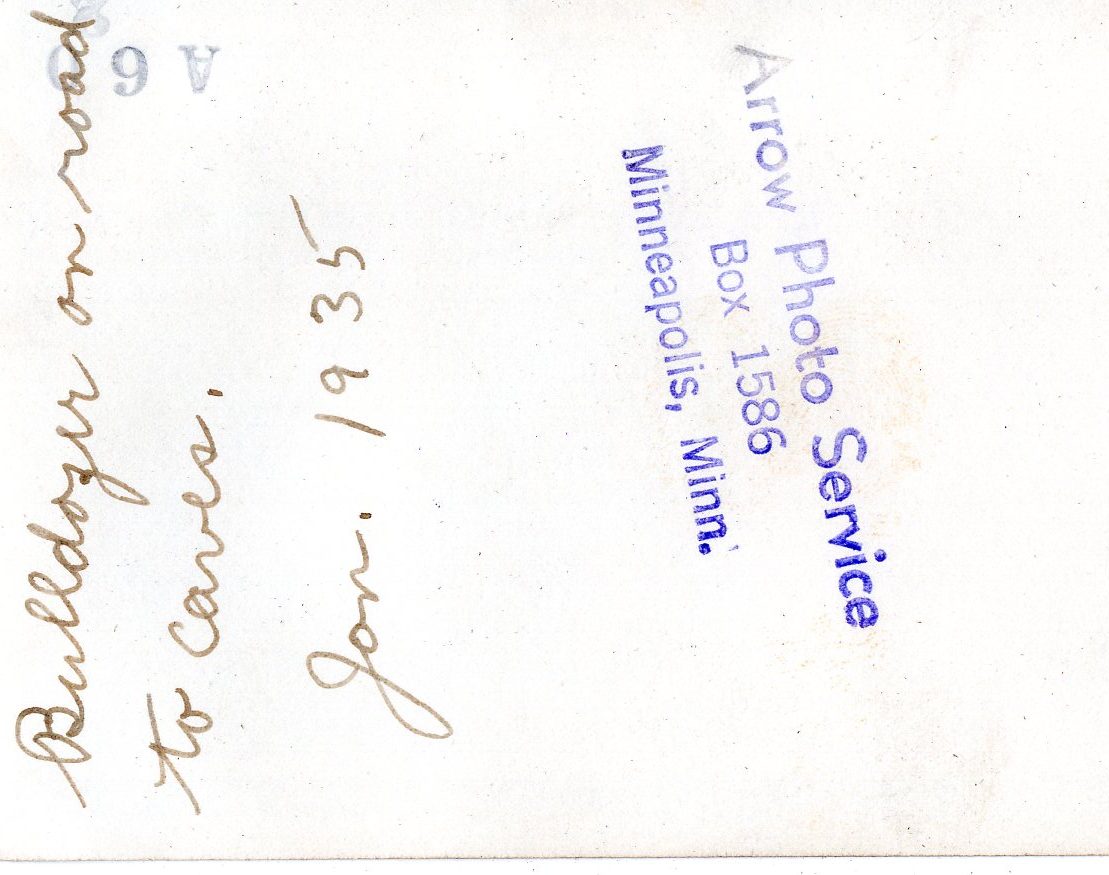 Bulldozer on road
to caves.
Jan. 1935
Arrow Photo Service
Box 1586
Minneapolis, Minn.
A 6